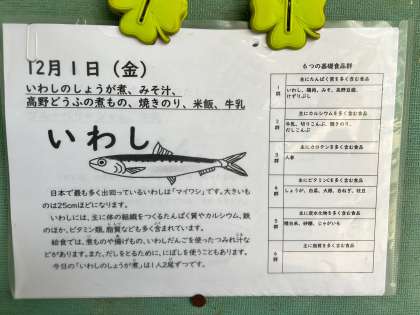 12月1日(金)
いわしのしょうが煮、みそ汁、
高野どうふの煮もの、焼きのり、米飯、牛乳
いわし
日本で最も多く出回っているいわしは「マイワシ」です。大きいも
のは25cmほどになります。
いわしには、主に体の組織をつくるたんぱく質やカルシウム、鉄
のほか、ビタミン類、脂質なども多く含まれています。
給食では、煮ものや揚げもの、いわしだんごを使ったつみれ汁な
どがあります。また、だしをとるために、にぼしを使うこともあります。
今日の「いわしのしょうが煮」は1人2尾ずつです。
6つの基礎食品群
主にたんぱく質を多く含む食品
1群
いわし、鶏肉、みそ、高野豆腐、
けずりぶし
主にカルシウムを多く含む食品
2群
牛乳、切りこんぶ、焼きのり、
だしこんぶ
主にカロテンを多く含む食品
3群
人参
主にビタミンCを多く含む食品
4群
しょうが、白菜、大根、玉ねぎ、枝豆
主に炭水化物を多く含む食品
5群
精白米、砂糖、じゃがいも
主に脂質を多く含む食品
6群